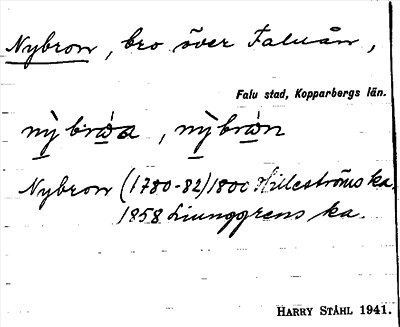 Nybron, bro över Faluån,
Falu stad, Kopparbergs län.
nỳbrǿa, nỳbrǿn
Nybron (1780-82) 1800 Hilleströms ka.
1858 Ljunggrens ka.
HARRY STÅHL 1941.